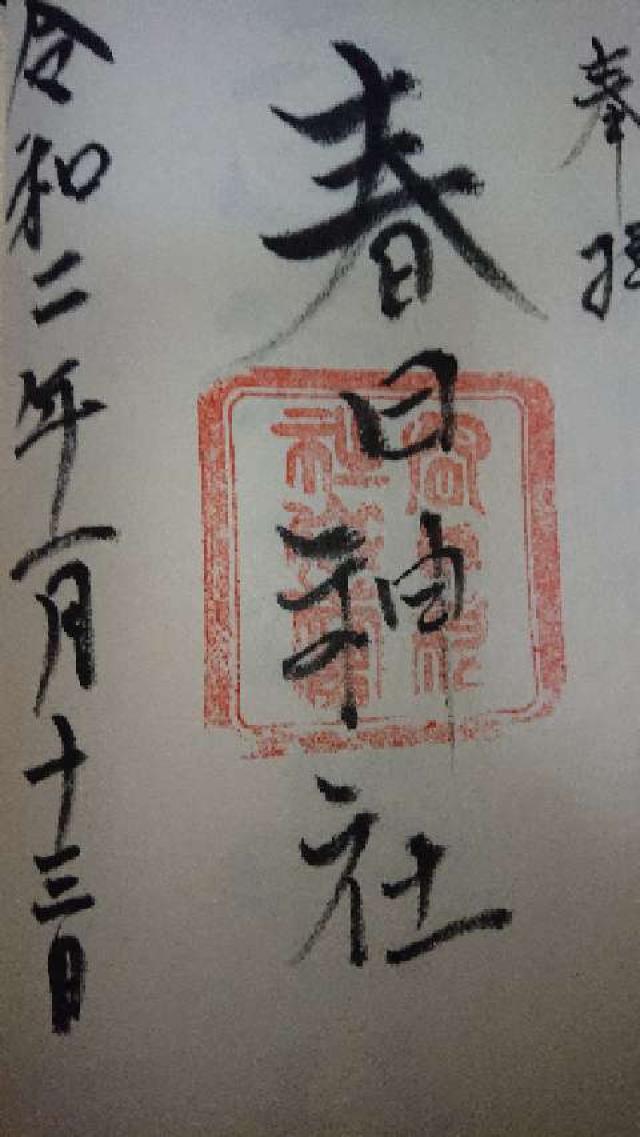 奉拝
春日神社
令和二年一月十三日